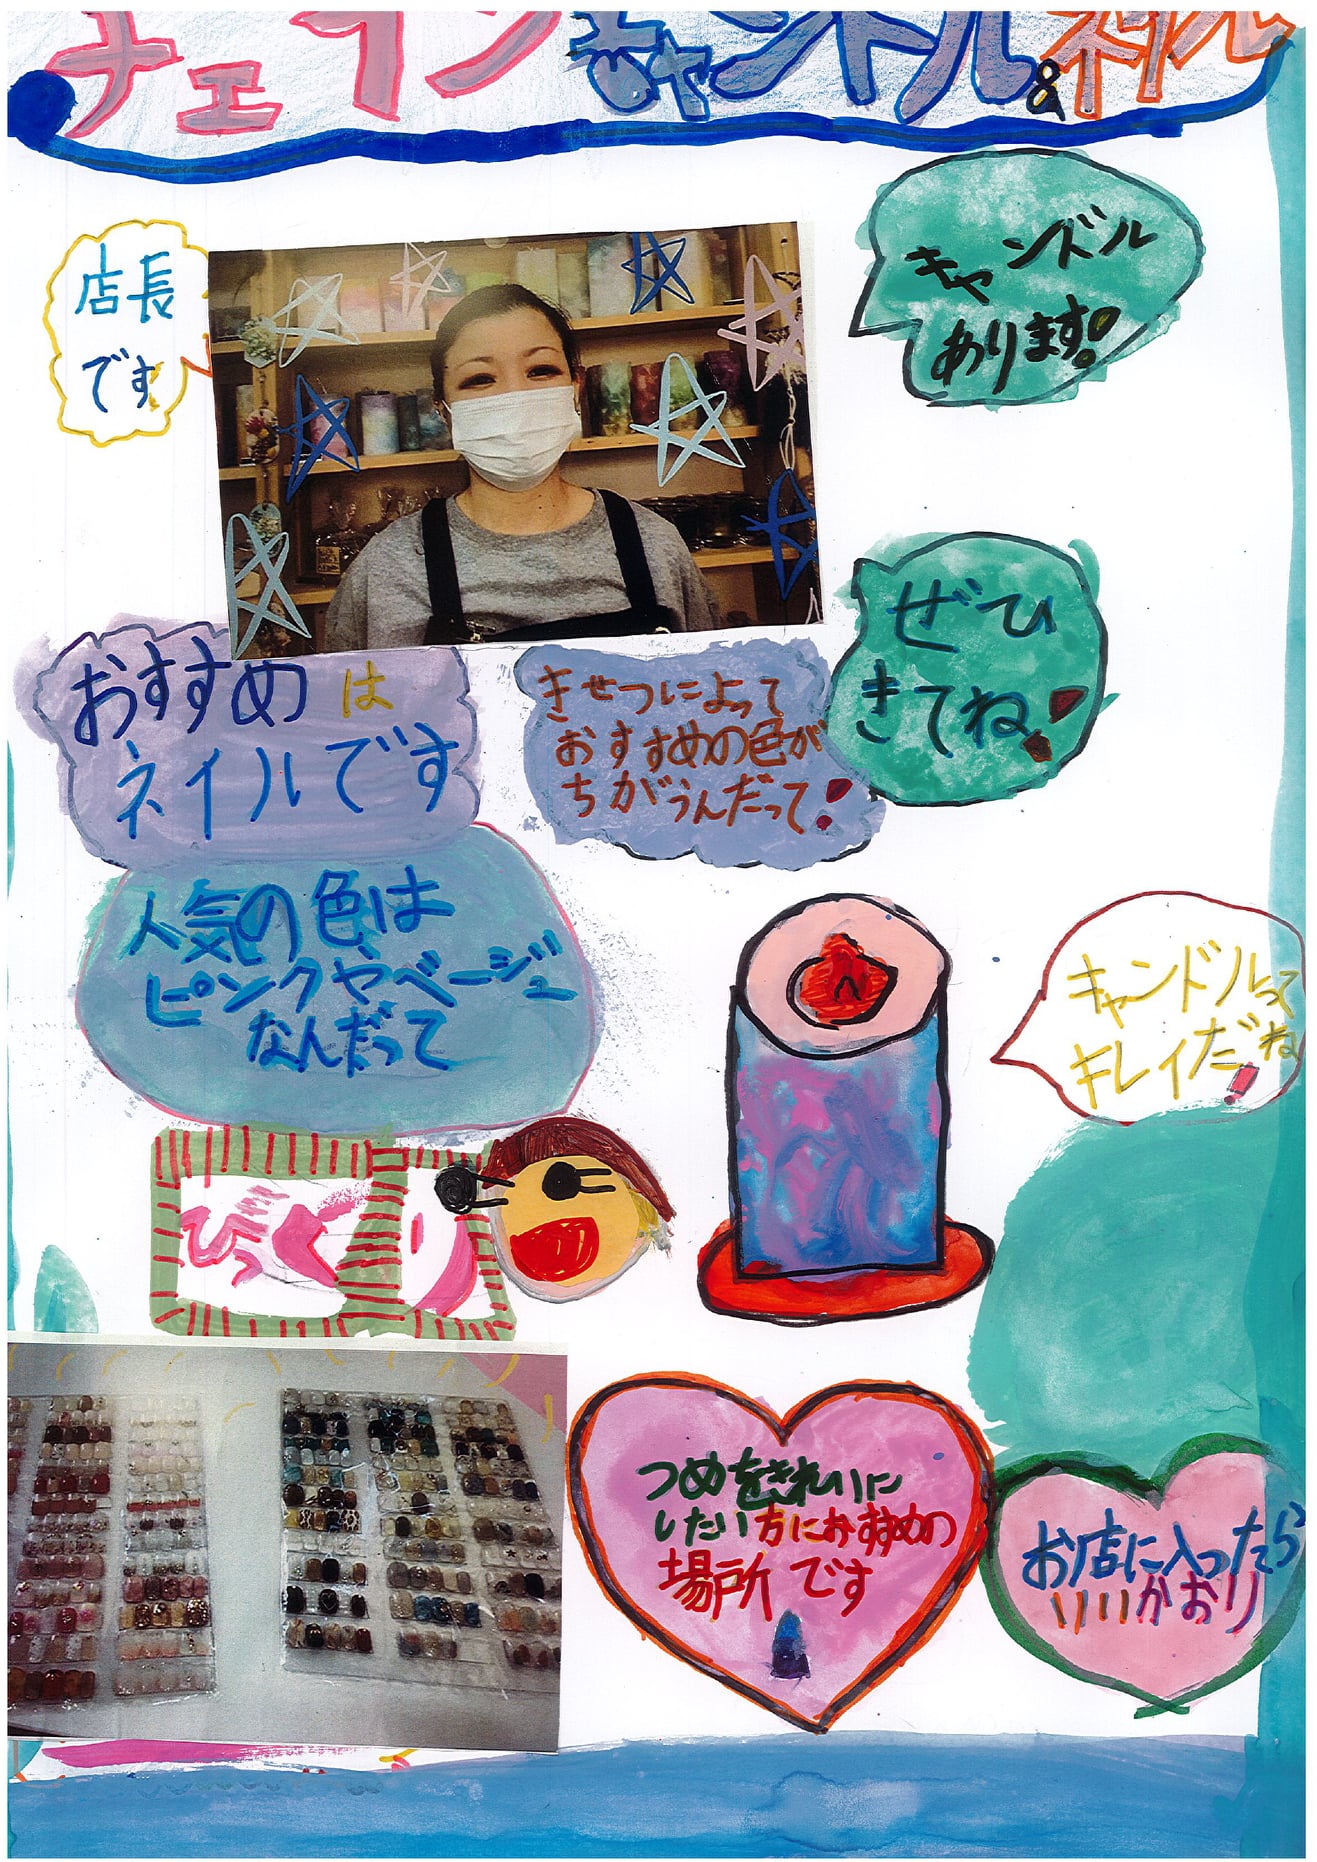 チェインキャンドル&ネイル
店長
です
キャンドル
あります!
ぜひ
きてね!
おすすめは
ネイルです
きせつによって
おすすめの色が
ちがうんだって!
人気の色は
ピンクやベージュ
なんだって
キャンドルって
キレイだね!
びっくり
つめをきれいに
したい方におすすめの
場所です
お店に入ったら
いいかおり